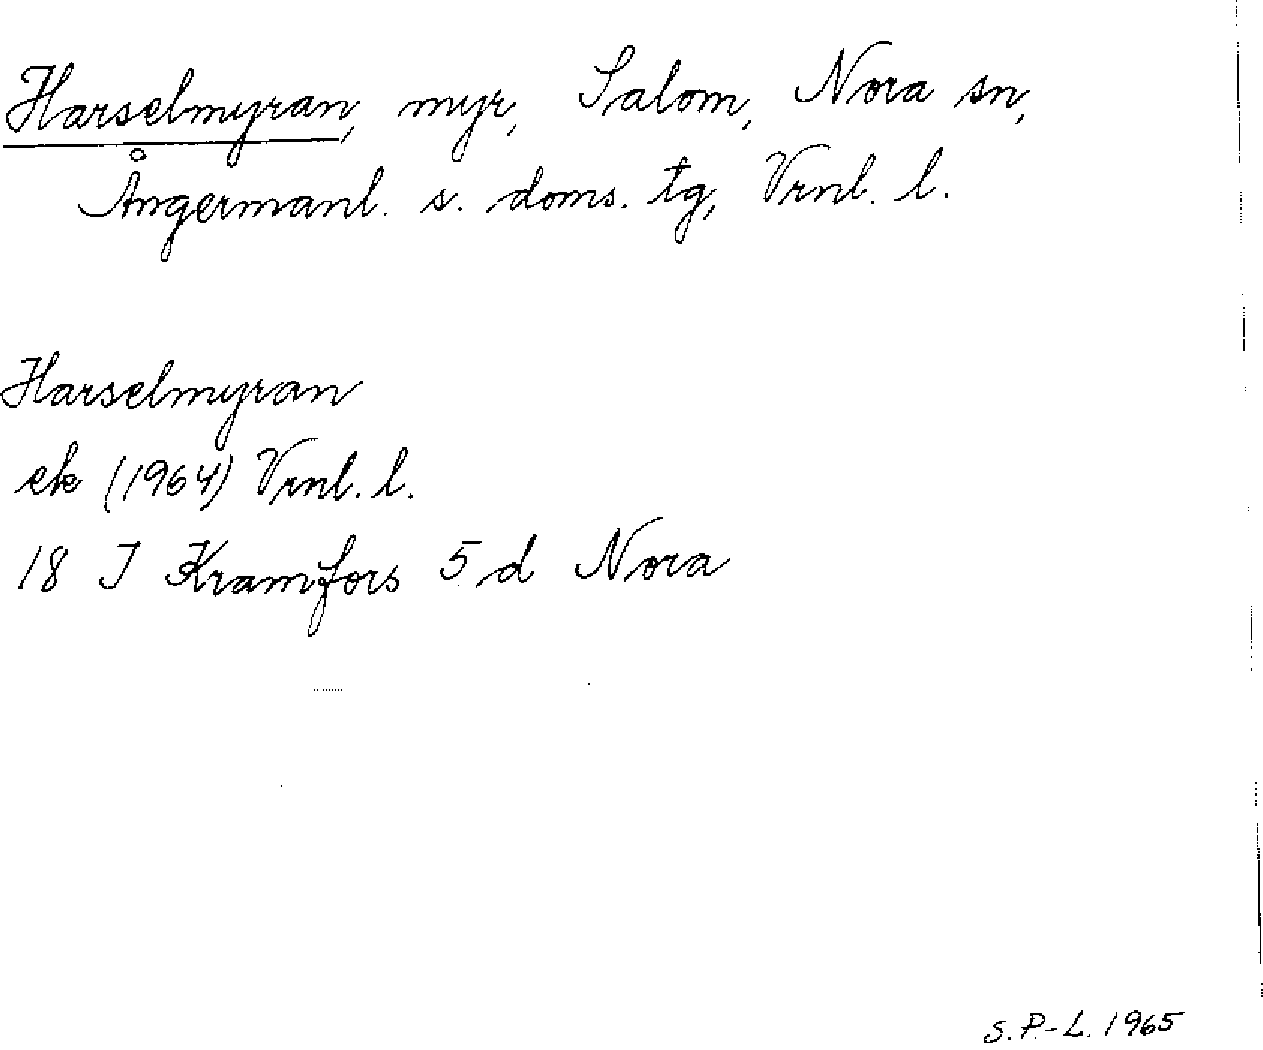 Harselmyran, myr, Salom, Nora sn,
Ångermanl. s. doms. tg, Vrnl. l.
Harselmyran
ek (1964) Vrnl. l.
18 J Kramfors 5 d Nora
S. P-L. 1965